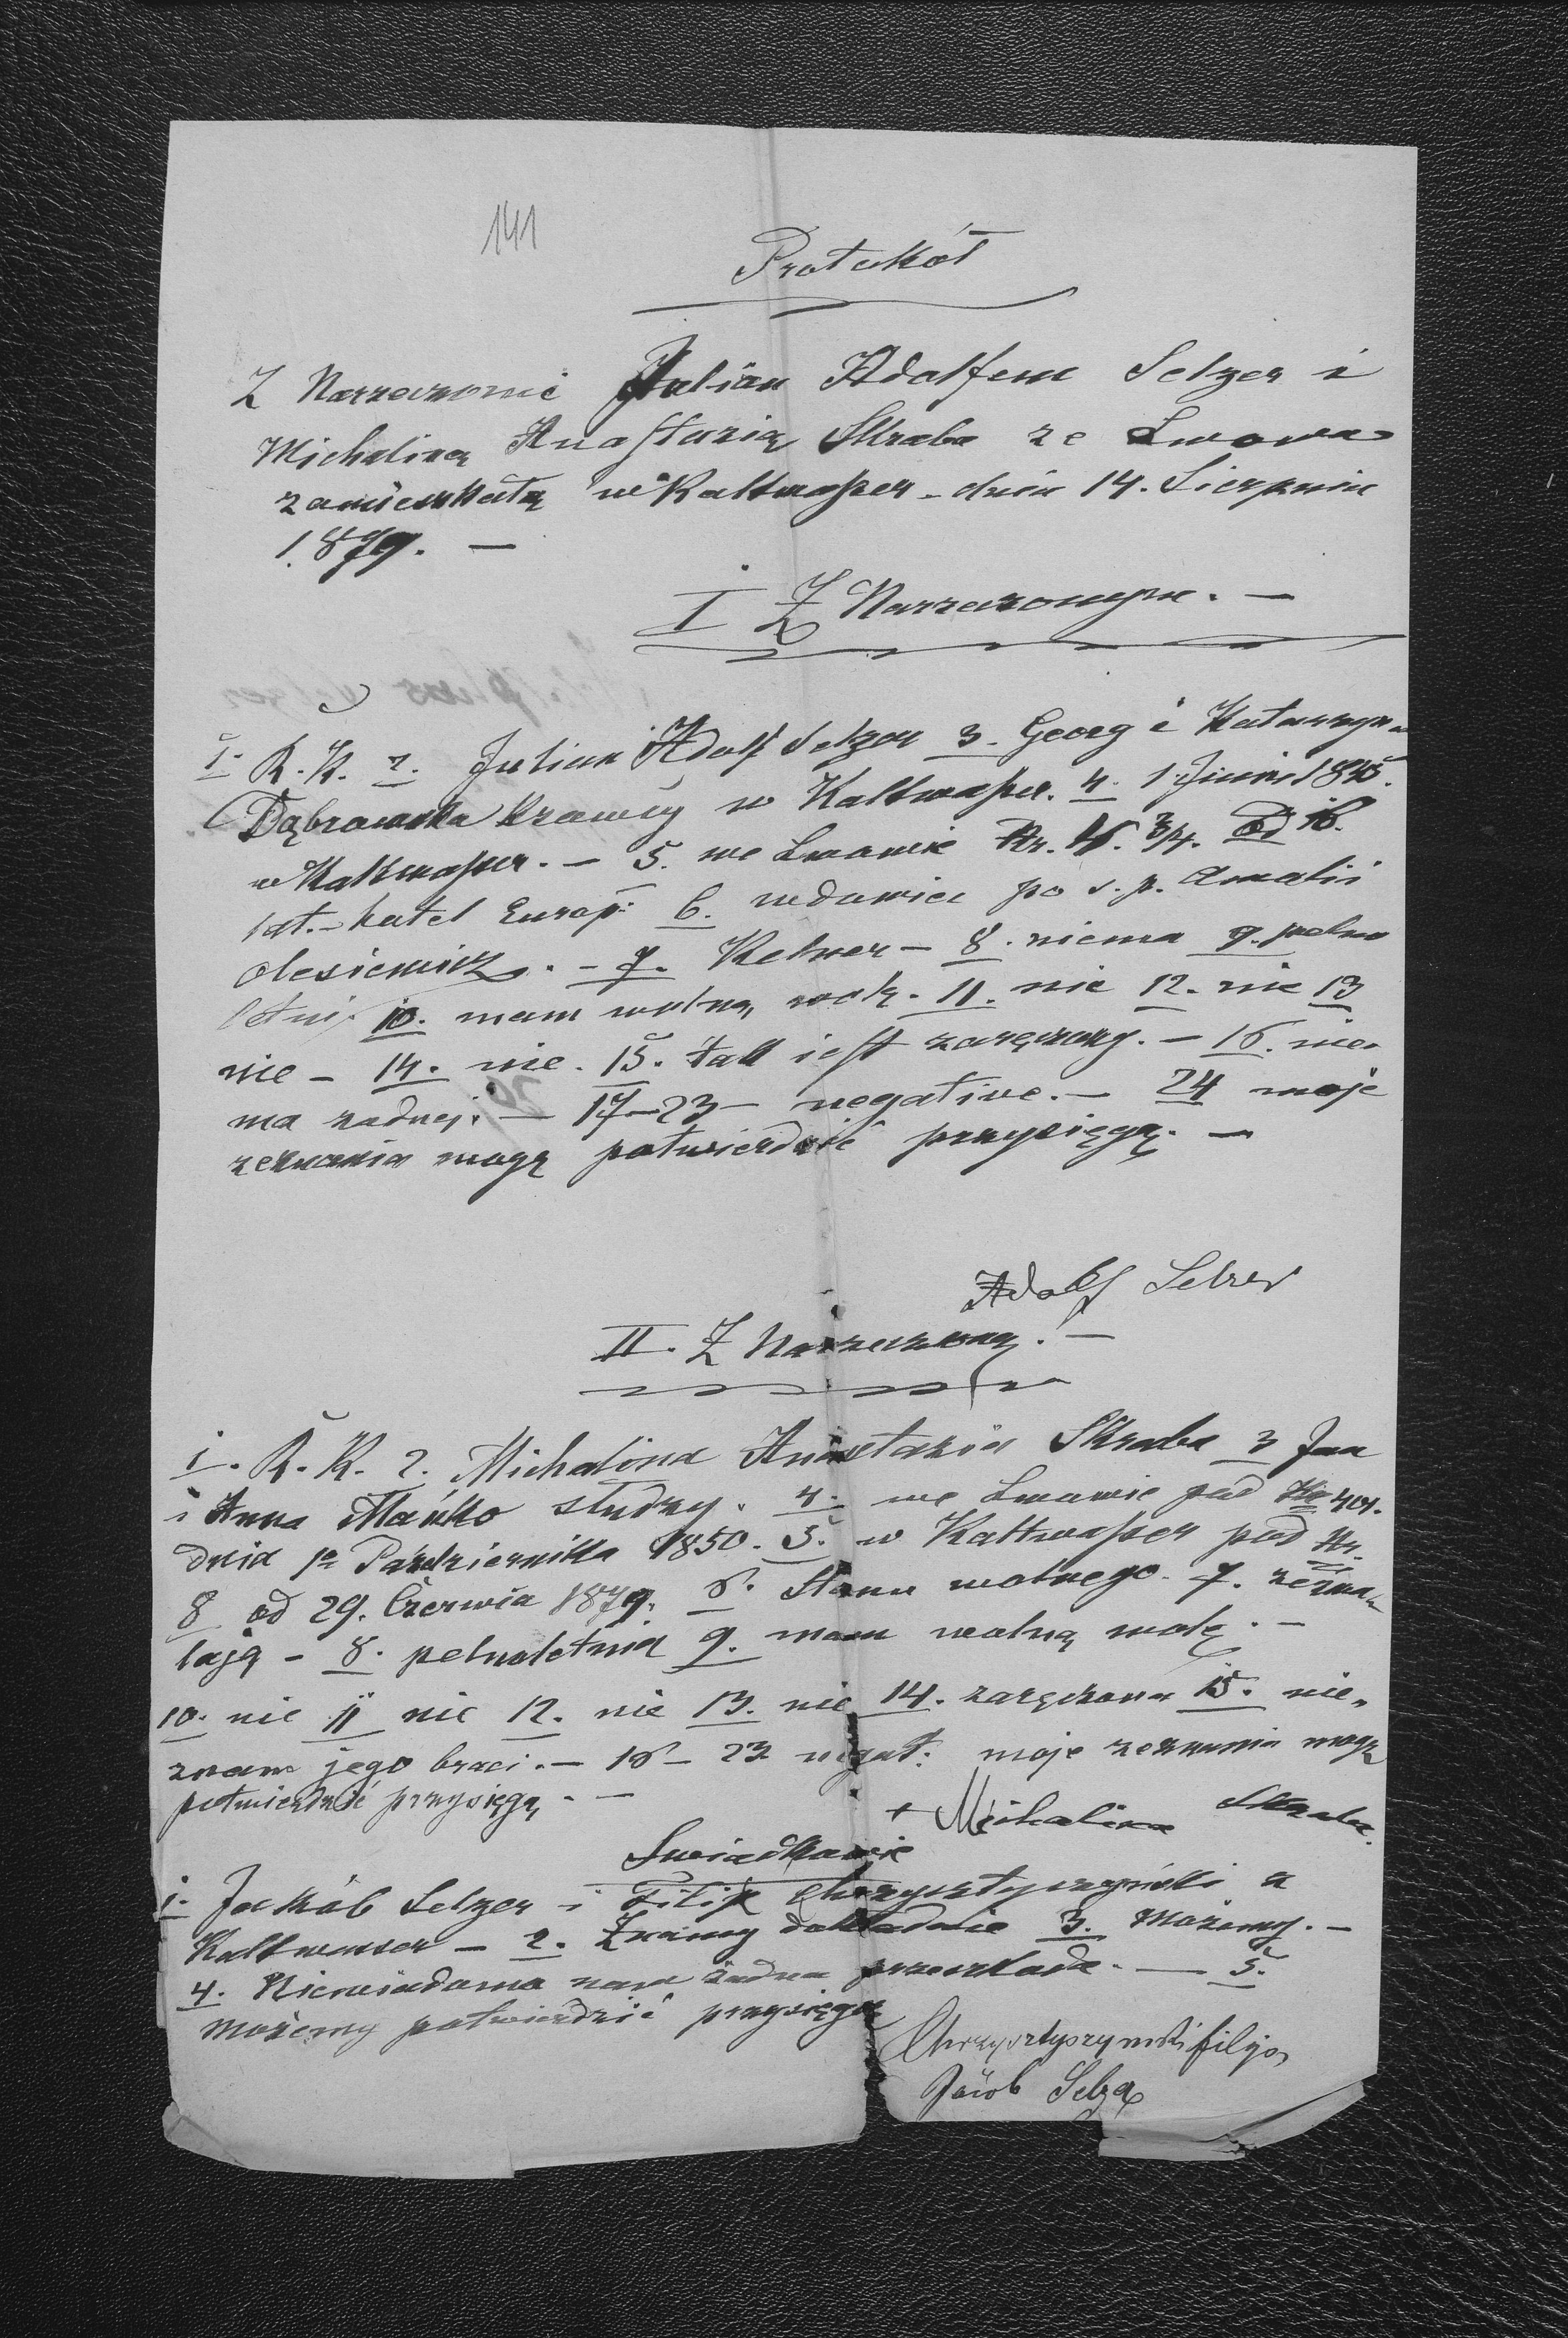 141
Protokół
Z Narzeczonie Julian Adolfem Selzer i
Michaliną Anastazią Skraba ze Lwowa
zamieszkałą w Kaltwasser - dnia 14. Sierpnia
1879. —
I Z Narzeczonym. —
1. R. K. 2. Julian Adolf Selzer 3. Georg i Katarzyna
Dąbrowska Krawcy w Kaltwasser. 4. 1 Juni 1845.
w Kaltwasser. — 5. we Lwowie Nr. 3/4. od 16.
lat. - hotel Europ. 6. wdowiec po s. p. Amalii
Olesiewicz. - 7. Kelner - 8. niema 9. pełno
letni 10. mam wolną wolę. 11. nie 12. nie 13
nie - 14. nie. 15. tak jest zaręczony. - 16. nie
ma zadnej. — 17-23 - negative. - 24 moje
zeznania mogę potwierdzić przysięgą. —
Adolf Selzer
II. Z Narzeczoną. —
1. R. K. 2. Michalina Anastazia Skraba 3 Jan
i Anna Mańko 4. we Lwowie pod Nr
dnia Października 1850. 5. w Kaltwasser pod Nr.
8 od 29. Czerwia 1879. 6. Stanu wolnego. 7.
- 8. pełnoletnia 9. mam wolną wolę. —
10. nie 11 nie 12. nie 13. nie 14. zaręczona 15. nie
znam jego braci. - 16 - 23 negat. moje zeznania mogę
potwierdzić przysięgą. —
+ Michalina Skraba.
Swiadkowie
1. Jakób Selzer i Filip Chrzysztyszyński z
Kaltwasser - 2. Znamy dokładnie 3. Możemy. —
4. Niewiadoma nam żadna przeszkoda. — 5.
możemy potwierdzić przysięgą
Chrzysztyszynski filip
Jacob Selzer